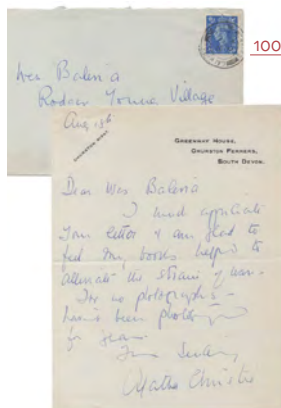 100
Rodger Young Village
Aug 13th
CHURSTON
GREENWAY HOUSE,
CHURSTON FERRERS,
SOUTH DEVON.
Dear Mrs
I much appreciate
your letter & am glad to
feel my books helped to
alleviate the strain of war.
I've no photographs –
haven't been
for years
Yours
Agatha Christie